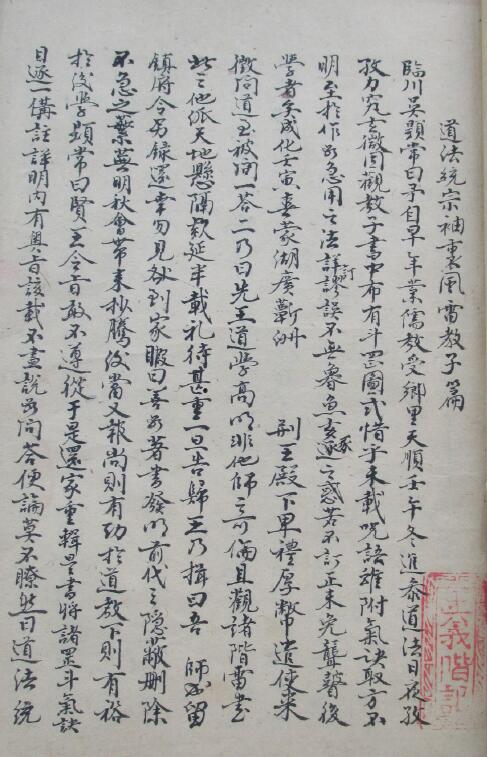 道法統宗袖裏風雷教子篇
臨川吳顯常曰予自早年業儒教受鄉里天順壬午冬進泰道法日夜孜
孜力究玄微因觀教子書中布有斗罡圖式惜乎未載咒語雖附氣訣取方不
明至於作為急用之法詳訂謬誤不無魯魚亥豕逐之惑若不訂正未免聾瞽後
學者矣成化壬寅喜蒙湖廣蘄州 荆王殿下卑禮厚幣遣使來
徵問道至被問一答二乃曰先王道學高明非他師之可倫且觀諸階雷書
此之他派天地懸隔款延半載礼待甚重一旦告歸王乃揖曰吾 師必留
鎮府令另錄還幸勿見却到家暇日吾另著書發明前代之隐蔽删除
不急之繁蕪明秋會帶来抄騰後當又報尚則有功於道教下則有裕
於後學顯常曰賢王令旨敢不遵從于是還家重輯是書將諸罡斗氣訣
目逐一備註詳明内有奥旨該載不盡說為問答便論莫不瞭然曰道法統